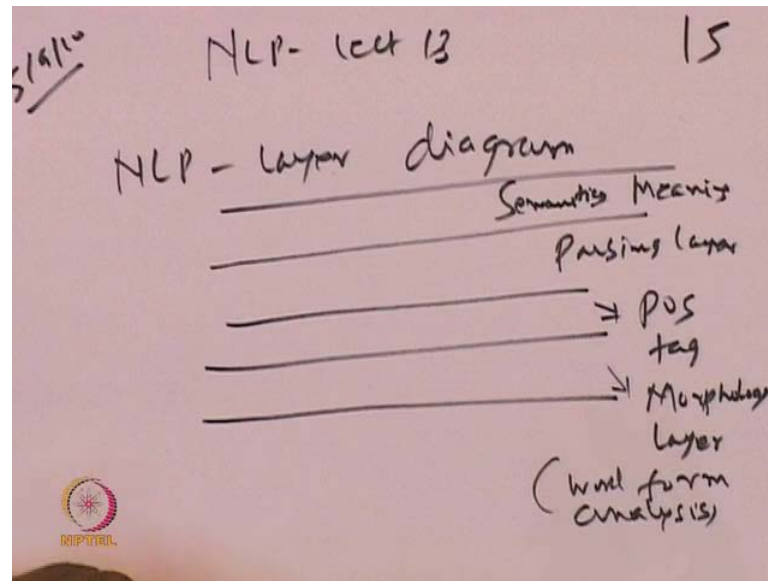 NLP- lect 13 15
NLP - Layer diagram
Semantics Meaning
Parsing Layer
POS
tag
Morphology
Layer
(word form
analysis)
NPTEL